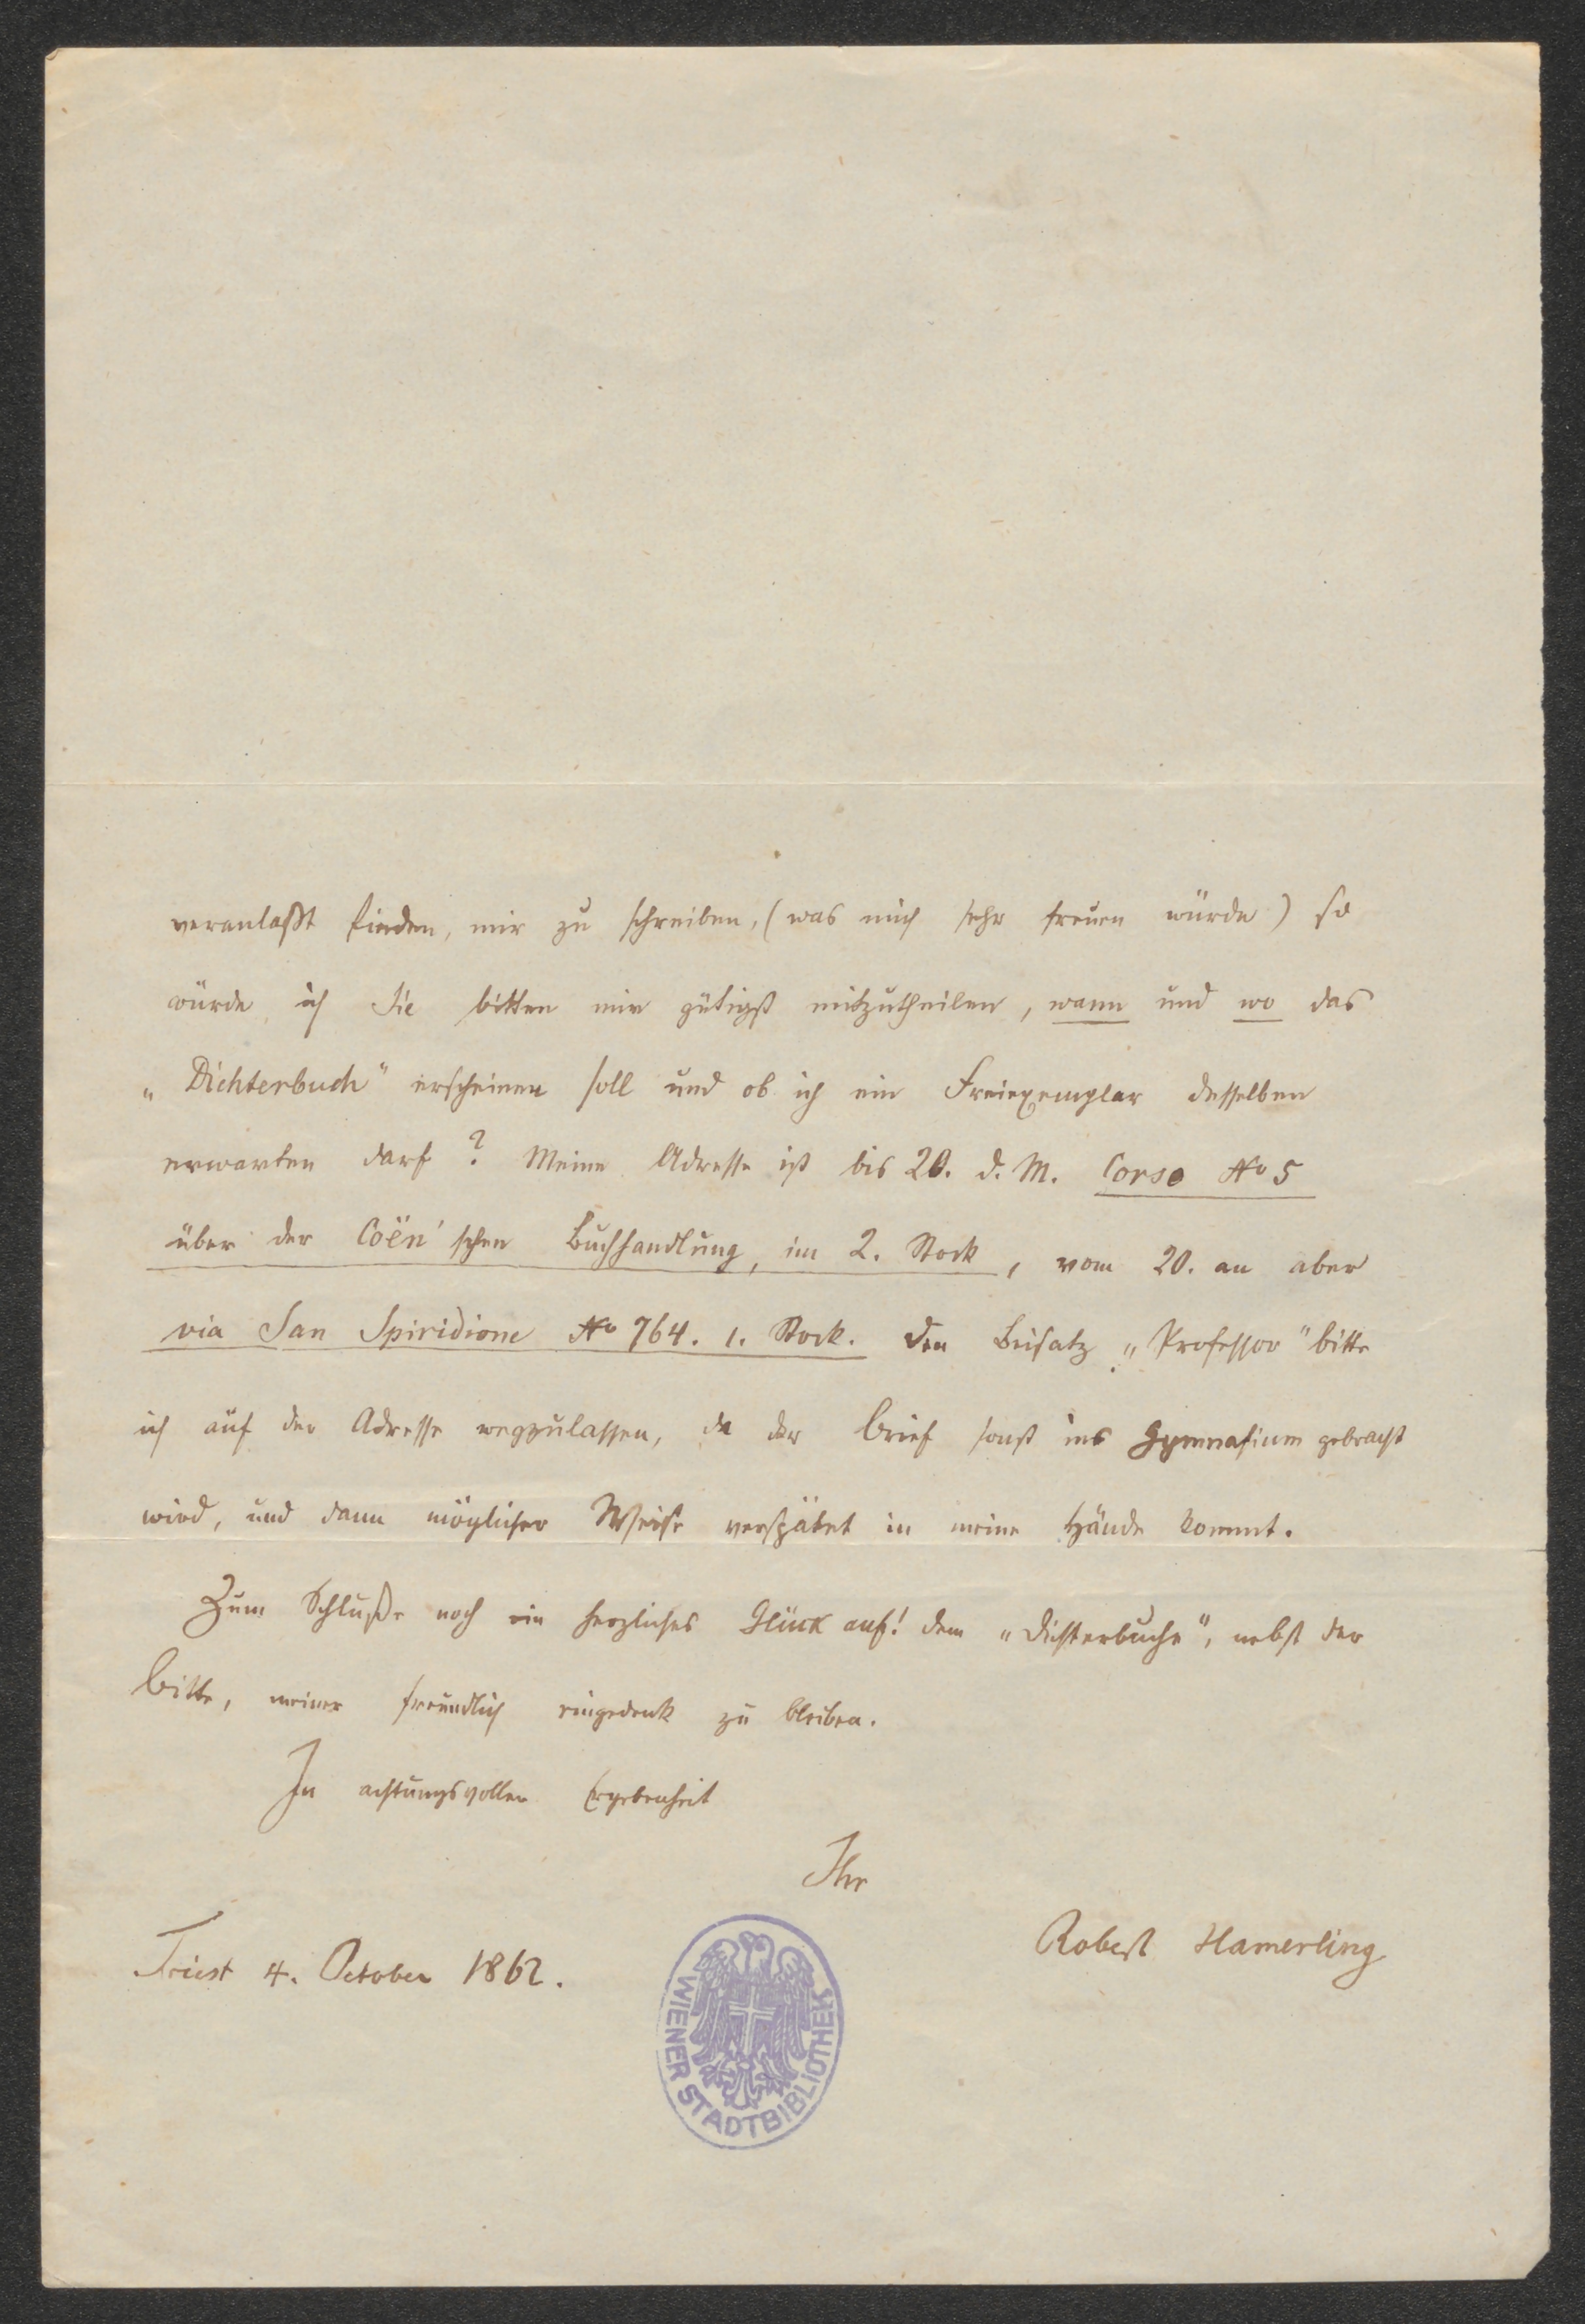 veranlaßt finden, mir zu schreiben, (was mich sehr freuen würde) so
würde ich Sie bitten mir gütigst mitzutheilen, wann und wo das
„Dichterbuch" erscheinen soll und ob ich ein Freiexemplar desselben
erwarten darf? Meine Adresse ist bis 20. d. M. Corso No 5
über der Coën'schen Buchhandlung, im 2. Stock, vom 20. an aber
via San Spiridione No 764. 1. Stock. Den Beisatz „Professor" bitte
ich auf der Adresse wegzulassen, da der Brief sonst ins Gymnasium gebracht
wird, und dann möglicher Weise verspätet in meine Hände kommt.
Zum Schluße noch ein herzliches Glück auf! dem „Dichterbuche", nebst der
Bitte, meiner freundlich eingedenk zu bleiben.
In achtungsvoller Ergebenheit
Ihr
Robert Hamerling
Triest 4. October 1862.
WIENER STADTBIBLIOTHEK